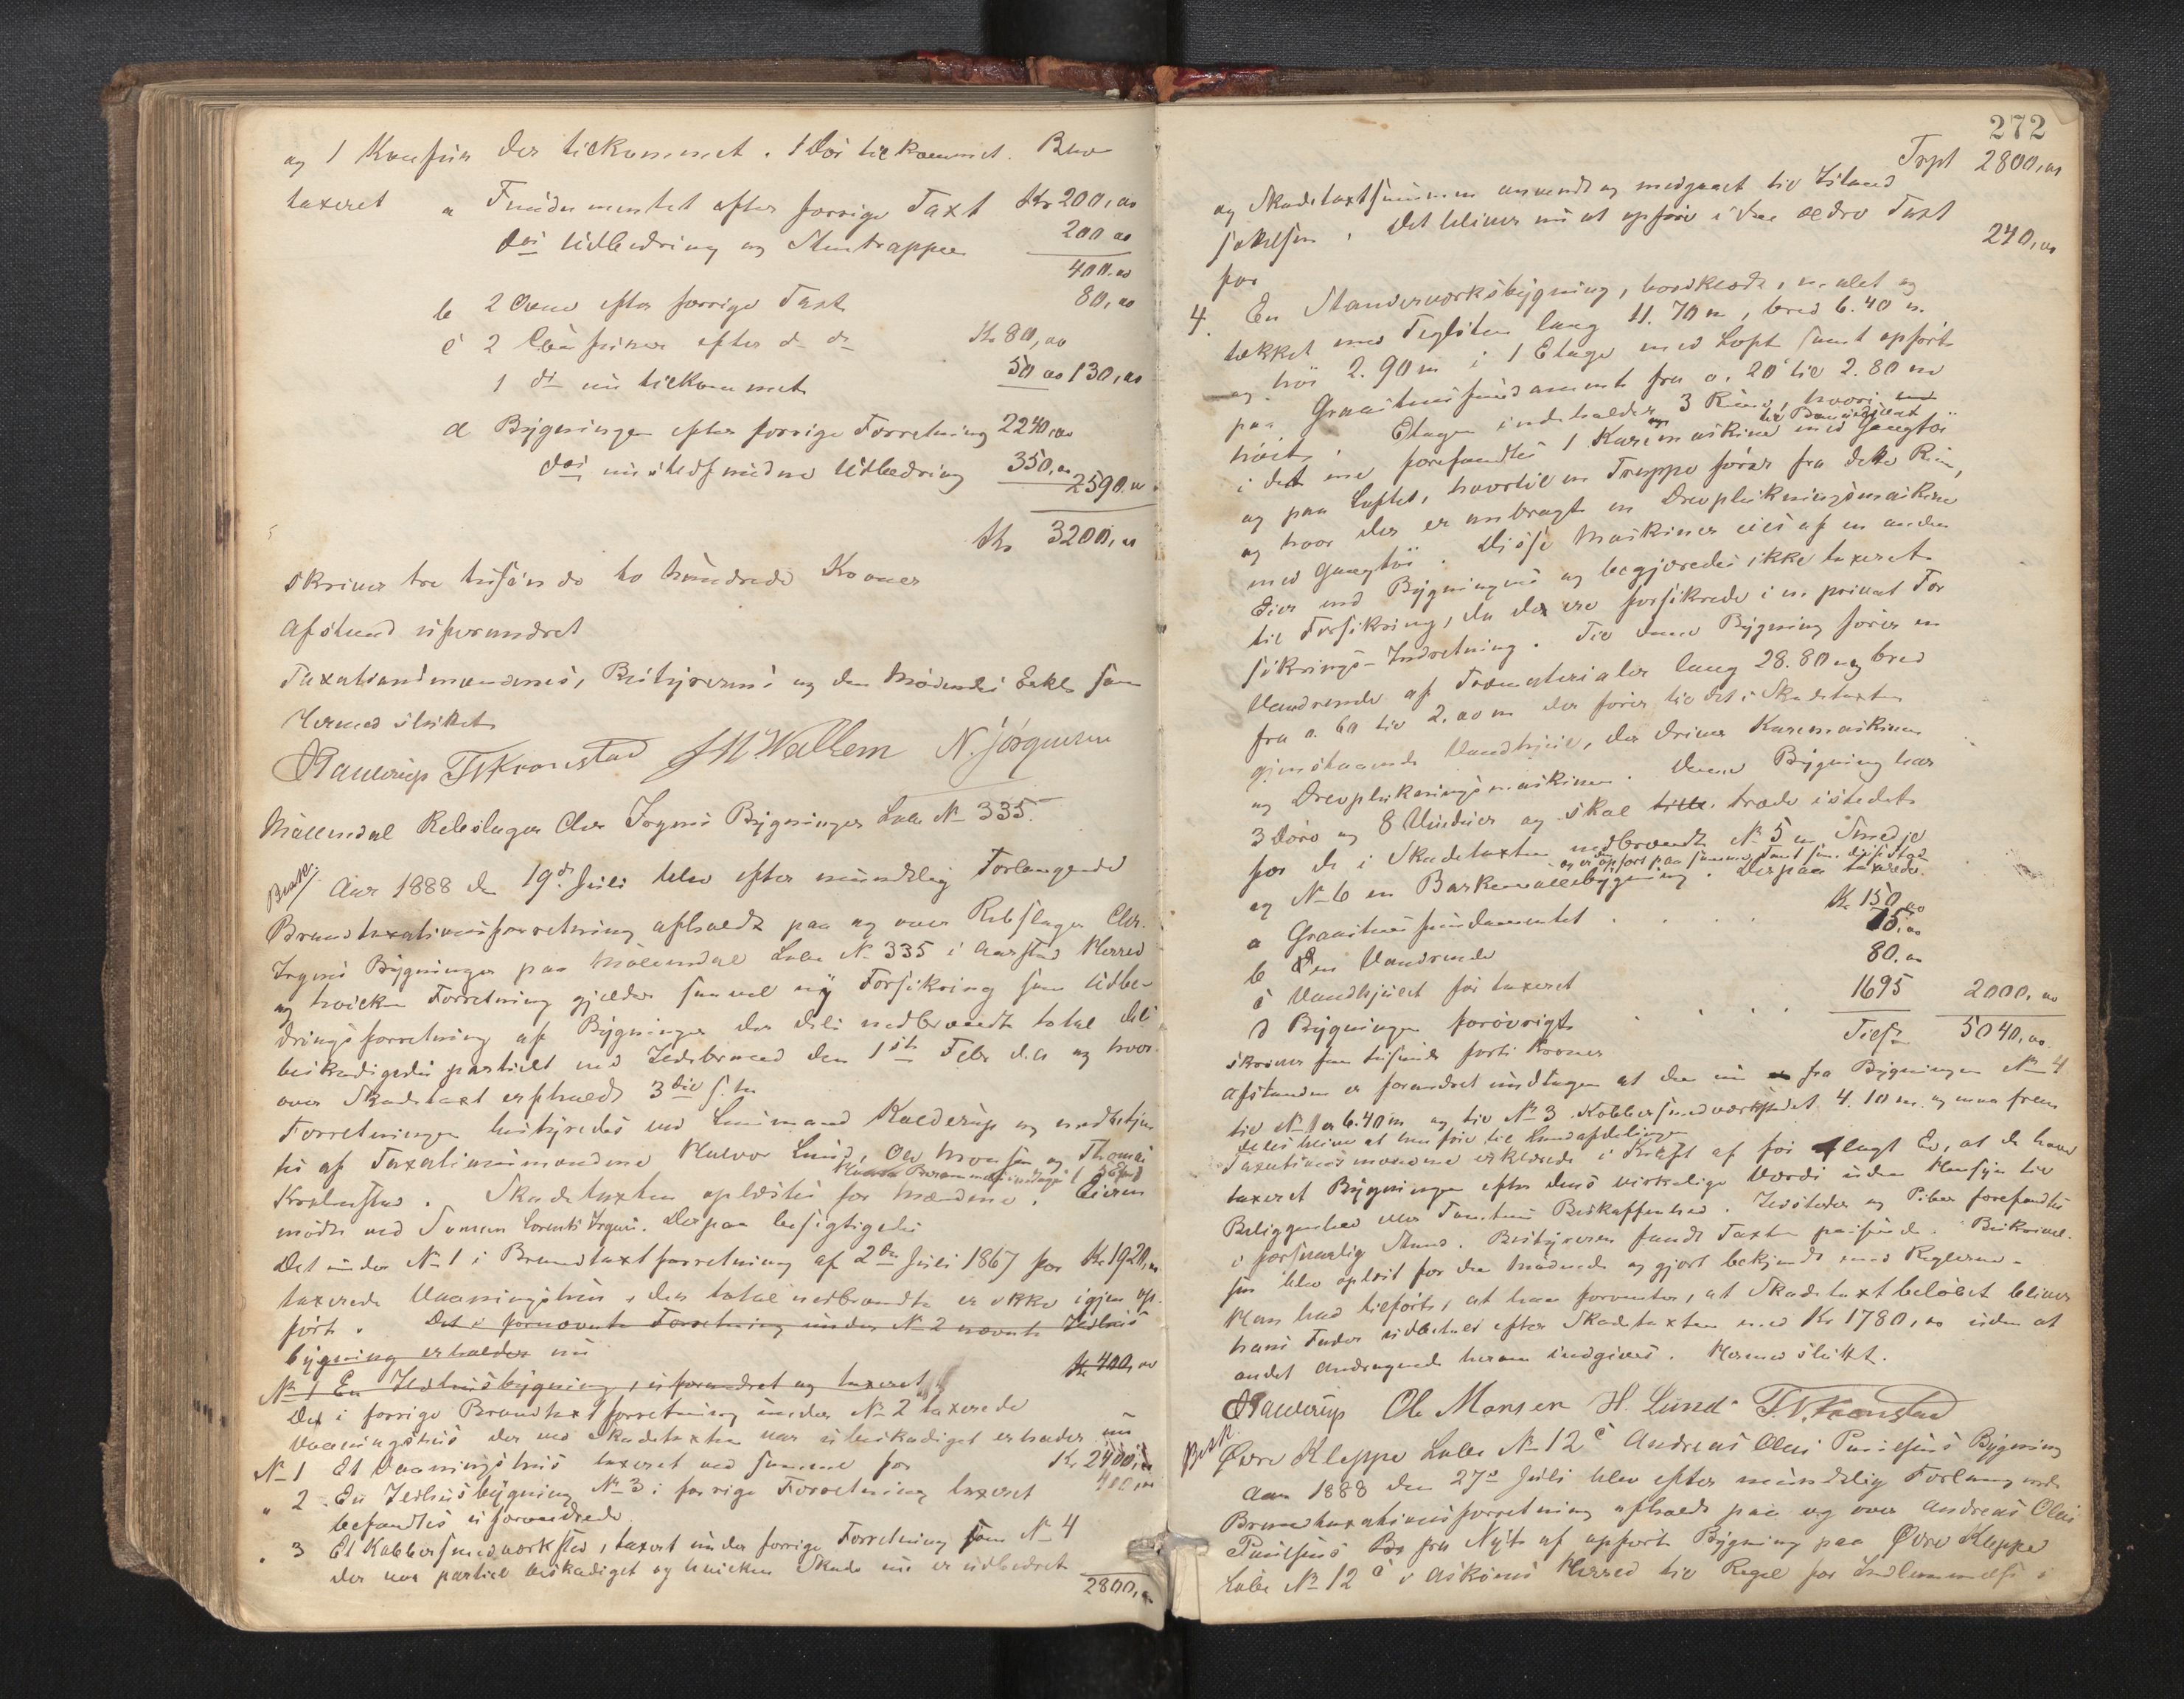 og 1 Komfur der tilkommet. 1 Dör tilkommet. Blev
taxeret a Fundamentet efter forrige Taxt Kr 200,00
do Udbedring og Stentrapper 200 00
400.00
b 2 Ovne efter forrige Taxt 80,00
c 2 Comfurer efter do do Kr 80,00
1 do nu tilkommet 50 00 130,00
d Bygningen efter forrige Forretning 2240,00
do nu stedfundne Udbedring 350,00 2590.00
Kr 3200,00
skriver tre tusande to hundrede Kroner
Afstand uforandret
Taxationsmændenes, Bestyrerens og den Mödendes Erkl. som
Hermed sluttet
Kaldrup T. Kronstad J M. Wallem N. Jörgensen
Möllendal Rebslager Chr Irgens Bygninger Löbe No 335.
Besk.
Aar 1888 den 19de Juli blev efter mundtlig Forlangende
Brandtaxationsforretning afholdt paa og over Rebslager Chr.
Irgens Bygninger paa Möllendal Löbe No 335 i Aarstad Herred
og hvilken Forretning gjælder saavel ny Forsikring som Udbe-
dringsforretning af Bygninger der dels nedbrændte total dels
beskadigedes partielt ved Ildebrand den 1ste Febr d.A og hvor-
over Skadetaxt er afholdt 3die s. M
Forretningen bestyredes ved Lensmand Kaldrup og med betjen
tes af Taxationsmændene Halvor Lund, Ole Monsen og Thomas
Kronstad. Skadetaxten oplæstes for Mændene. Eieren
mödte ved Sönnen Lorentz Irgens. Derpaa besigtigedes
Det under No 1 i Brandtaxtforretning af 2den Juli 1867 for Kr 1920,00
taxerede Vaaningshus, der total nedbrændte er ikke igjen op-
fört. Det i fornævnte Forretning under No 2 nævnte Ildhus
bygning erholder nu
No 1 En Ildhusbygning, uforandret og taxeret Kr 400,00
Det i forrige Brandtaxtforretning under No 2 taxerede
Vaaningshus der ved Skadetaxten var ubeskadiget erholder nu
No 1 Et Vaaningshus taxeret ved samme for Kr 2400,00
" 2 En Ildhusbygning No 3 i forrige Forretning taxeret 400,00
befandtes uforandrede
" 3 Et Kobbersmedværksted, taxert under forrige Forretning som No 4
der var partiel beskadiget og hvilken Skade nu er udbedret
2800,00
272
Trpt 2800,00
og Skadetaxtsummen anvendt og medgaaet til Istand
sættelsen. Det bliver nu at opföre i den ældre Taxt
for 240,00
4. En Standerværksbygning, bordklædt, malet og
tækket med Teglsten lang 11.70 m, bred 6.40 m.
og höi 2.90 m i 1 Etage med Loft samt opfört
paa Graastensfundament fra 0.20 til 2.80 m
höit. Etagen indeholder 3 Rum, hvori
i det ene forefandtes 1 Karemaskine med Gangtöi
og paa Loftet, hvortil en Trappe förer fra dette Rum,
og hvor der er anbragt en Drevplukningsmaskine
med Gangtöi. Disse Maskiner eies af en anden
Eier end Bygningens og begjæredes ikke taxeret
til Forsikring, da der ere forsikrede i en privat For
sikrings-Indretning. Til denne Bygning förer en
Vandrende af Træmaterialer lang 28.80 m og bred
fra 0.60 til 2.00 m der förer til det i Skadetaxten
gjenstaaende Vandhjul, der driver Karemaskinen
og Drevplukningsmaskinen. Denne Bygning har
3 Döre og 8 Vinduer og skal træde istedet
for de i Skadetaxten nedbrændte No 5 en Smedje
og No 6 en Barkemöllebygning. Derpaa taxerede
og er den opfört paa samme Tomt som disse
a Graastensfundamentet Kr 150,00
b Den Vandrende 75,00
c Vandhjulet för taxeret 80.00
d Bygningen forövrigt 1695 2000,00
Tilsn 5040,00
skriver fem tusinde forti Kroner
Afstanden er forandret undtagen at den nu fra Bygningen No 4
til No 1 er 6.40 m og til No 3 Kobbersmedværkstedet 4.10 m.
Taxationsmændene erklærede i Kraft af för aflagt Ed, at de have
taxeret Bygningen efter dens virkelige Værdi uden Hensyn til
Beliggenhed eller Tomtens Beskaffenhed. Ildsteder og Piber forefandtes
i forsvarlig Stand. Bestyreren fandt Taxten passende. Beskrivel-
sen blev oplæst for den Mödende og gjort bekjendt med Reglerne.
Han had tilfört, at han forventer, at Skadetaxtbelöbet bliver
hans Fader udbetalt efter Skadetaxten med Kr 1780,00 uden at
andet Andragende herom indgives. Hermed sluttet.
Kaldrup Ole Monsen H. Lund T. Kronstad
Besk.
Övre Kleppe Löbe No 12 c Andreas Olai Paulsens Bygning
Aar 1888 den 27de Juli blev efter mundtlig Forlangende
Brandtaxationsforretning afholdt paa og over Andreas Olai
Paulsens fra Nyt af opfört Bygning paa Övre Kleppe
Löbe No 12 c i Asköens Herred til Regel for Indlemmelse i